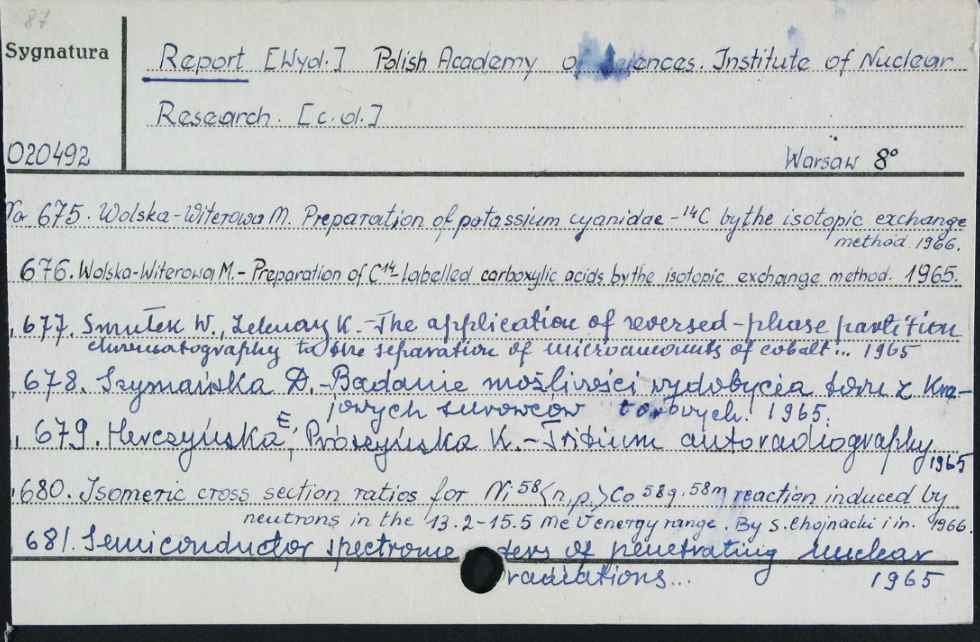 87
Sygnatura
Report [Wyd.] Polish Academy of Sciences. Institute of Nuclear
Research. [c.d.]
020492
Warsaw 8°
No 675. Wolska-Witerowa M. Preparation of potassium cyanidae - 14C by the isotopic exchange
method. 1966.
676. Wolska-Witerowa M. - Preparation of C14-labelled carboxylic acids by the isotopic exchange method. 1965.
677. Smułek W., K. - The application of reversed-phase partition
chromatography to the separation of microamounts of cobalt... 1965
678. Szymańska D. - Badanie możliwości wydobycia toru z kra-
jowych surowców torowych. 1965.
679. Herczyńska E., Prószyńska K. - Tritium autoradiography
1965
680. Isomeric cross section ratios for Ni 58<n,p>Co 58g.58m reaction induced by
neutrons in the 13.2-15.5 MeV energy range. By S. Chojnacki i in. 1966
681. Semiconductor spectrometers of penetrating nuclear
radiations... 1965